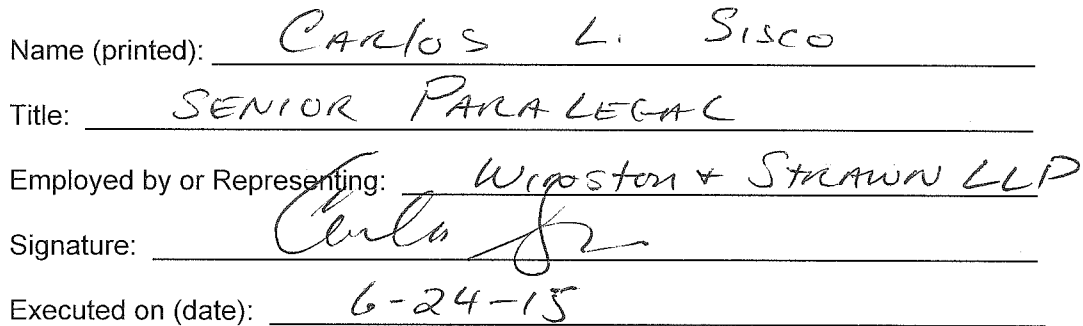 Name (printed): Carlos L. Sisco
Title: Senior Paralegal
Employed by or Representing: Winston + Strawn LLP
Signature:
Executed on (date): 6-24-15